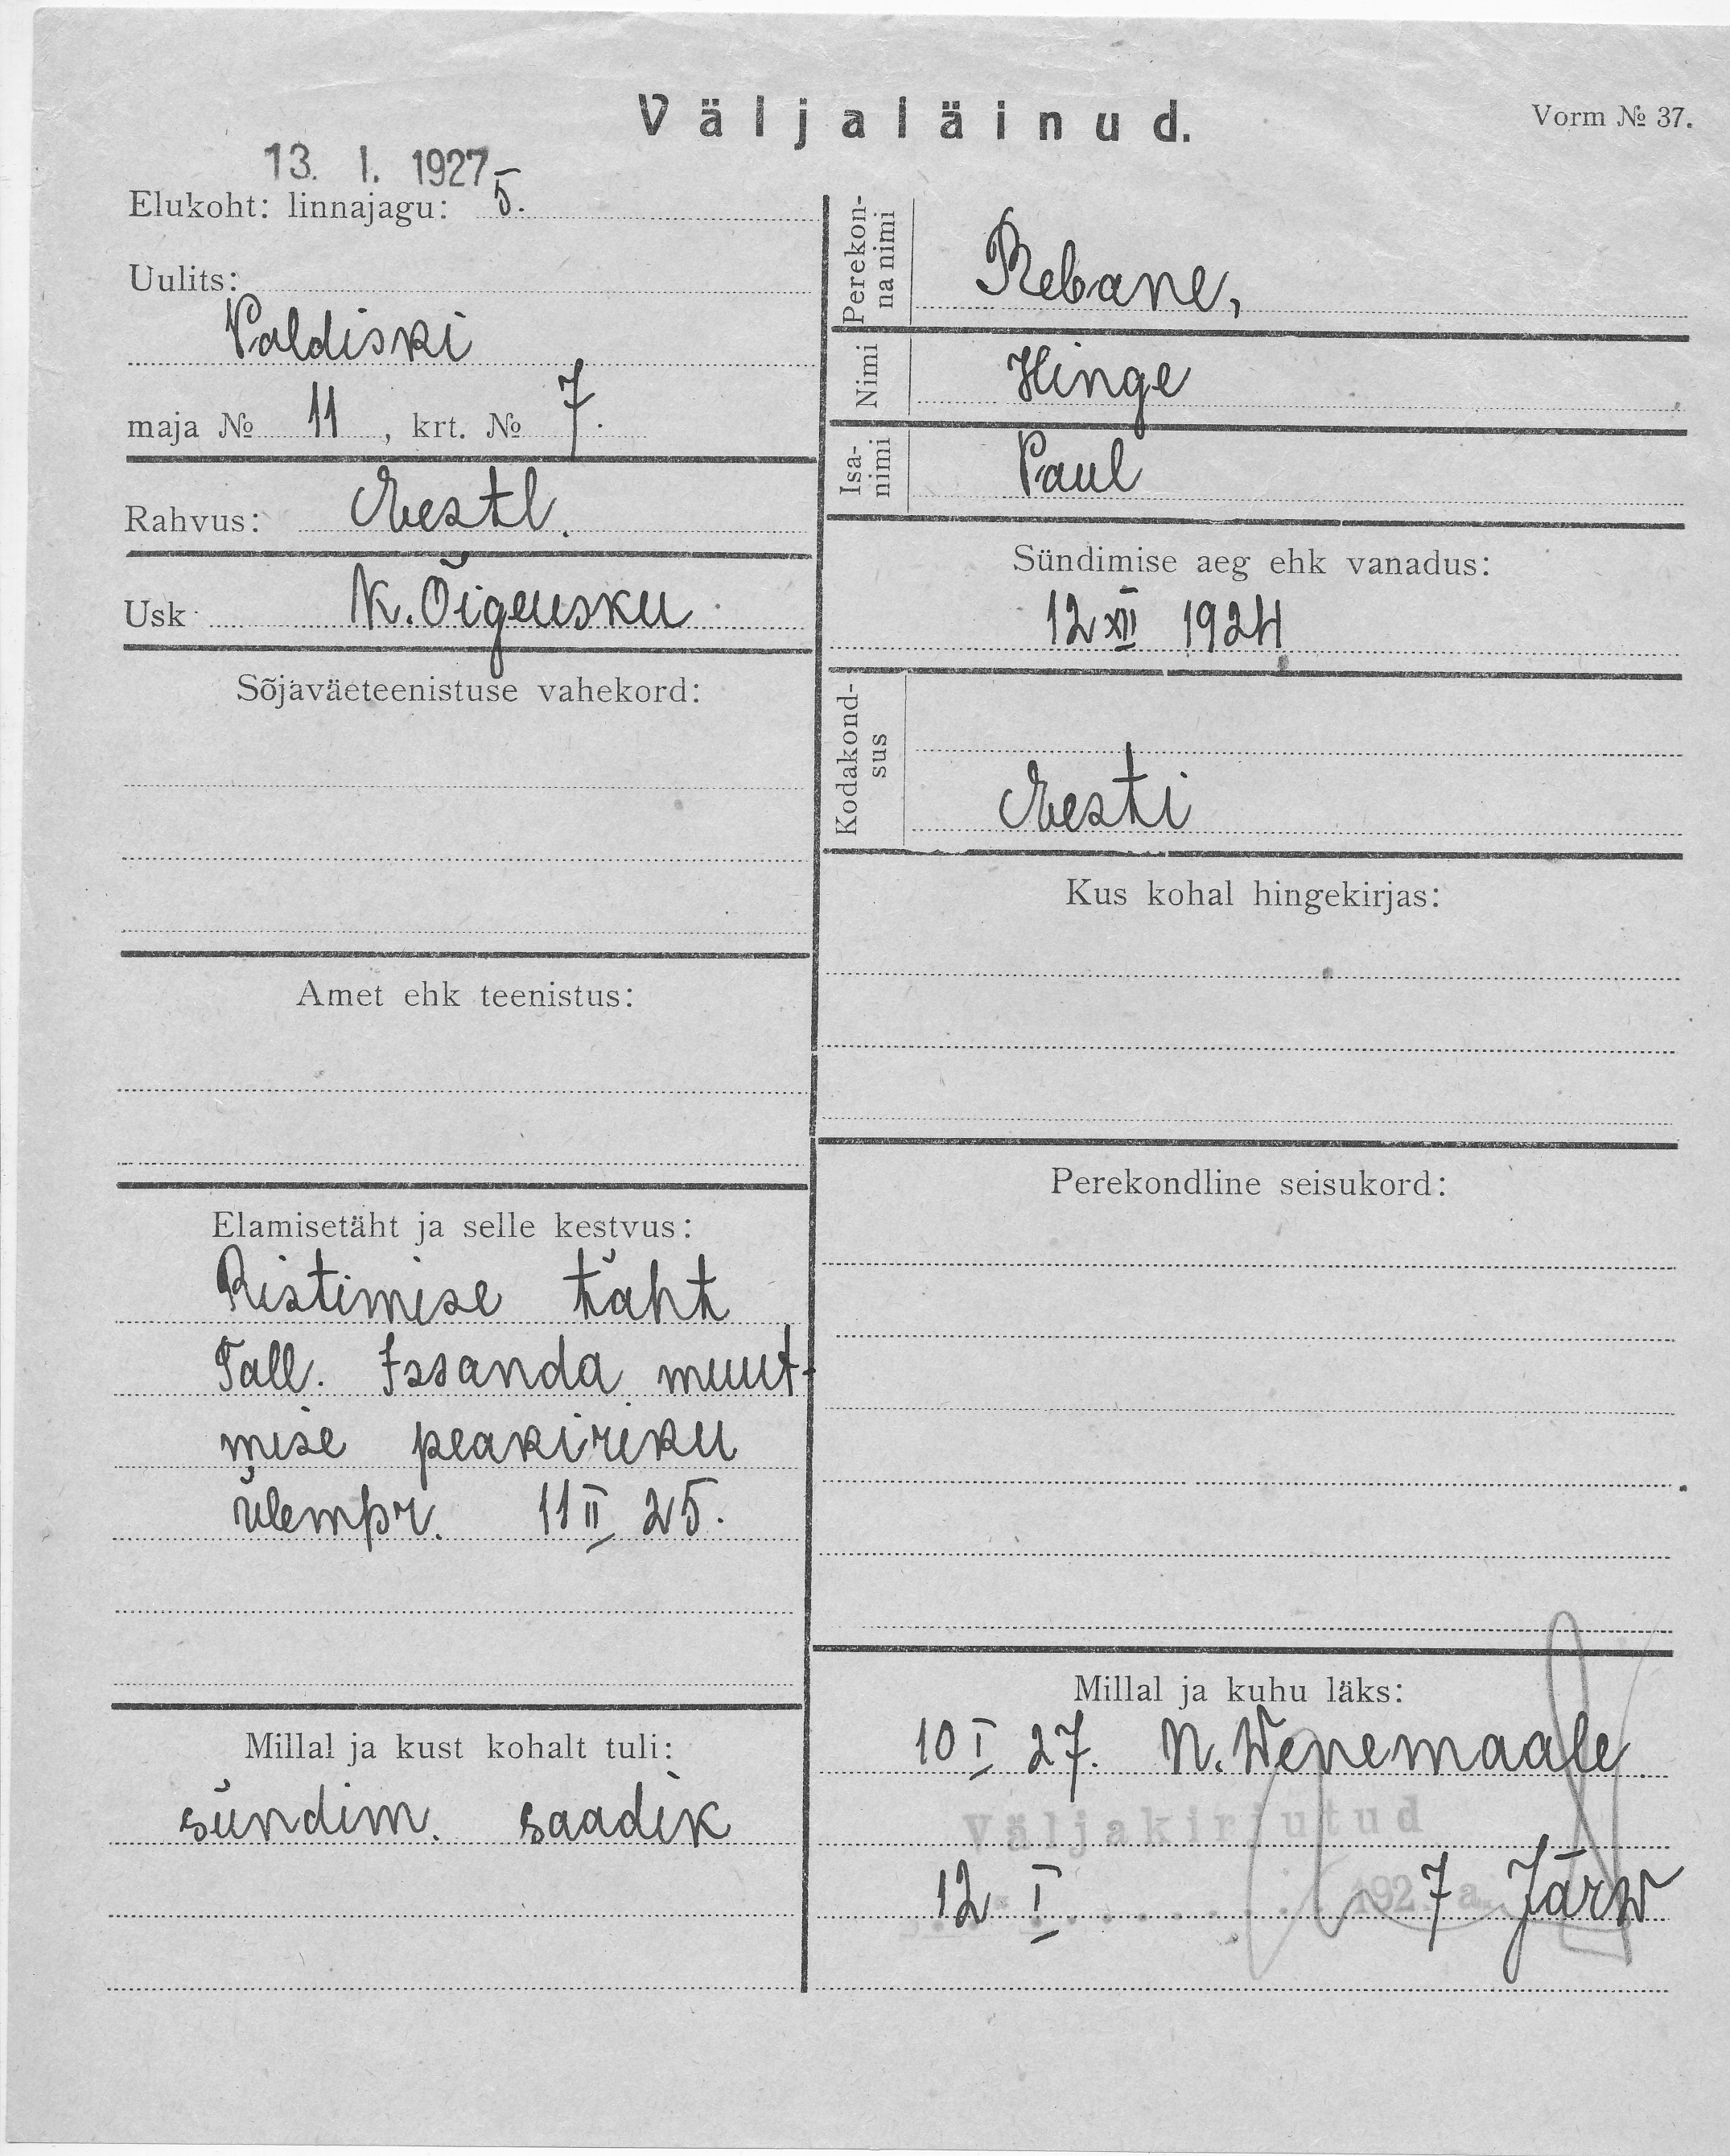 Väljaläinud.
Vorm № 37.
13. I. 1927
Elukoht: linnajagu: 5.
Uulits:
Paldiski
maja № 11, krt. № 7.
Rahvus: Eestl.
Usk K. Õigeusku
Sõjaväeteenistuse vahekord:
Amet ehk teenistus:
Elamisetäht ja selle kestvus:
Ristimise täht
Tall. Issanda muut-
mise peakiriku
ülempr. 11 II 25.
Millal ja kust kohalt tuli:
sündim. saadik
Perekon-
na nimi
Rebane,
Nimi Hinge
Isa-
nimi
Paul
Sündimise aeg ehk vanadus:
12 XII 1924
Kodakond-
sus
Eesti
Kus kohal hingekirjas:
Perekondline seisukord:
Millal ja kuhu läks:
10 I 27. N. Wenemaale
Väljakirjutud
12 I 1927 a. Järw